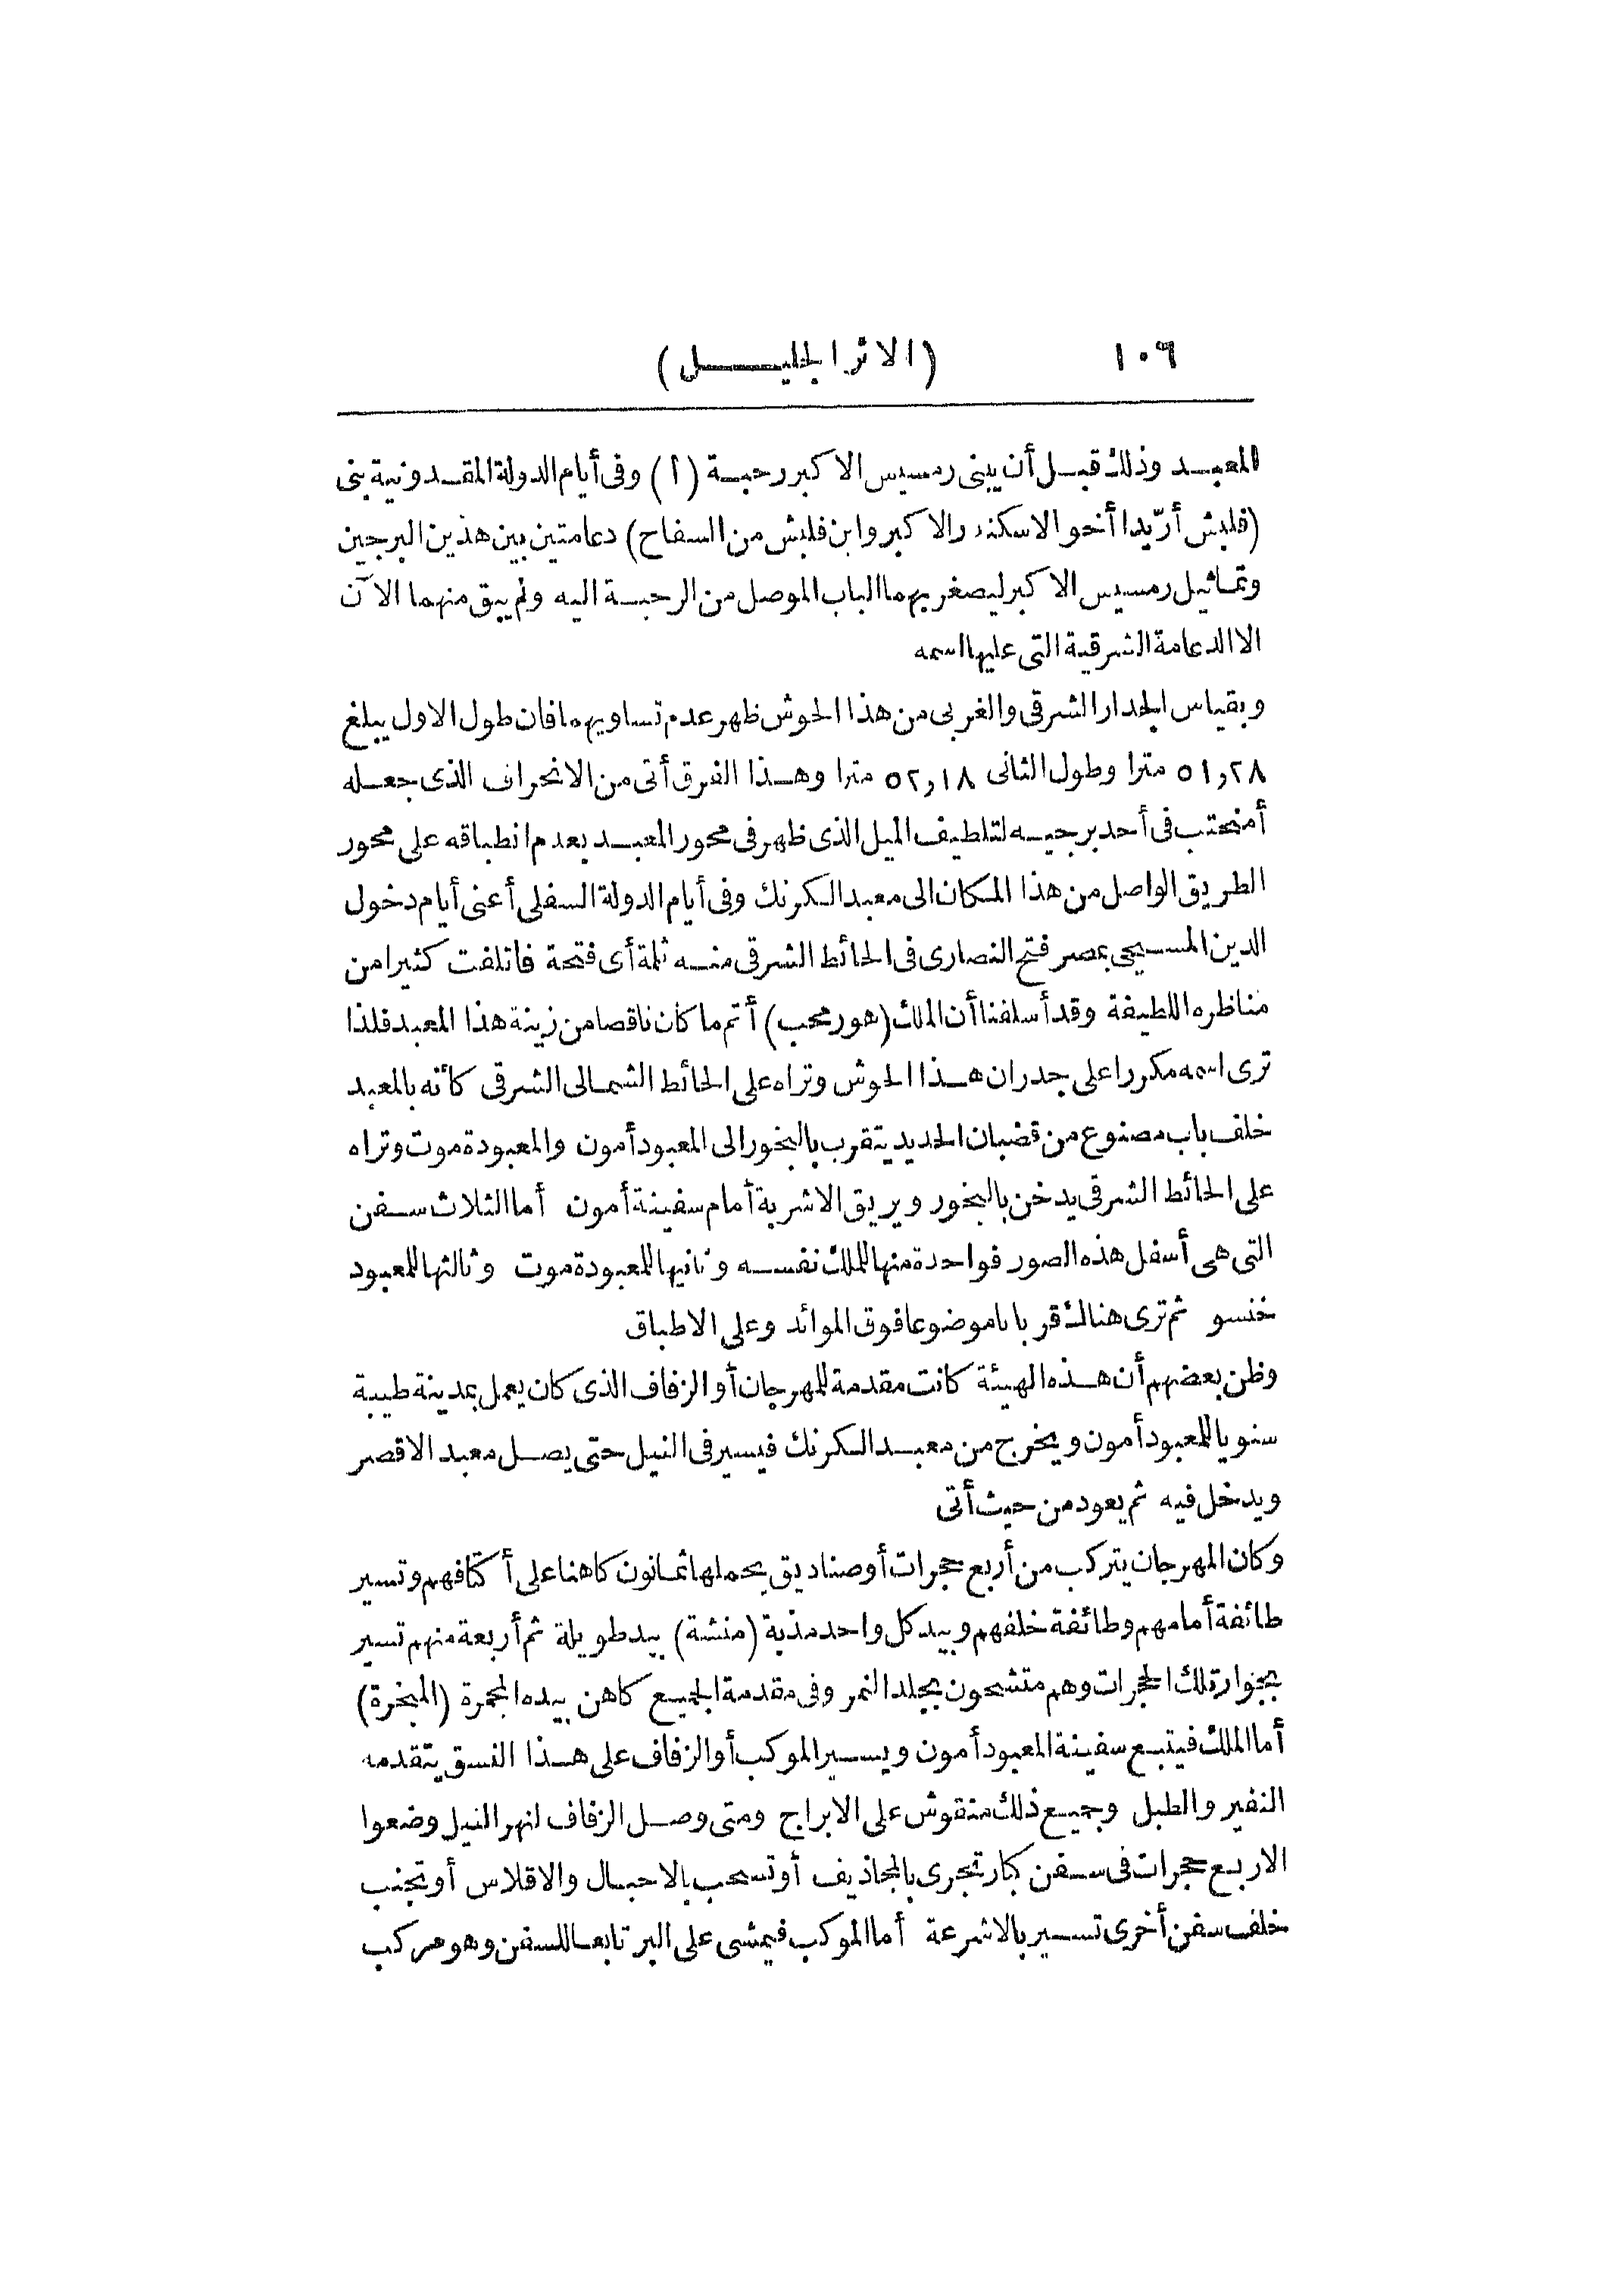 ١٠٦ (الاثر الجليل)
المعبد وذلك قبل أن يبنى رمسيس الاكبر رحبة (أ) وفى أيام الدولة المقدونية بنى
(فلبش أرّيدا أخو الاسكندر الاكبر وابن فلبش من السفاح) دعامتين بين هذين البرجين
وتماثيل رمسيس الاكبر ليصغر بهما الباب الموصل من الرحبة اليه ولم يبق منهما الآن
الا الدعامة الشرقية التى عليها اسمه
وبقياس الجدار الشرقى والغربى من هذا الحوش ظهر عدم تساويهما فان طول الاول يبلغ
٥١,٢٨ مترا وطول الثانى ٥٢,١٨ مترا وهذا الفرق أتى من الانحراف الذى جعله
أمنحتب فى أحد برجيه لتلطيف الميل الذى ظهر فى محور المعبد بعدم انطباقه على محور
الطريق الواصل من هذا المكان الى معبد الكرنك وفى أيام الدولة السفلى أعنى أيام دخول
الدين المسيحى بمصر فتح النصارى فى الحائط الشرقى منه ثلمة أى فتحة فاتلفت كثيرا من
مناظره اللطيفة وقد أسلفنا أن الملك (هور محب) أتم ما كان ناقصا من زينة هذا المعبد فلذا
ترى اسمه مكررا على جدران هذا الحوش وتراه على الحائط الشمالى الشرقى كأنه بالمعبد
خلف باب مصنوع من قضبان الحديد يتقرب بالبخور الى المعبود أمون والمعبودة موت وتراه
على الحائط الشرقى يدخن بالبخور ويريق الاشربة أمام سفينة أمون أما الثلاث سفن
التى هى أسفل هذه الصور فواحدة منها للملك نفسه وثانيها للمعبودة موت وثالثها للمعبود
خنسو ثم ترى هناك قربانا موضوعا فوق الموائد وعلى الاطباق
وظن بعضهم أن هذه الهيئة كانت مقدمة للمهرجان أو الزفاف الذى كان يعمل بمدينة طيبة
سنويا للمعبود أمون ويخرج من معبد الكرنك فيسير فى النيل حتى يصل معبد الاقصر
ويدخل فيه ثم يعود من حيث أتى
وكان المهرجان يتركب من أربع حجرات أو صناديق يحملها ثمانون كاهنا على أكتافهم وتسير
طائفة أمامهم وطائفة خلفهم وبيد كل واحد مذبة (منشة) بيد طويلة ثم أربعة منهم تسير
بجوار تلك الحجرات وهم متشحون بجلد النمر وفى مقدمة الجميع كاهن بيده المجمرة (المبخرة)
أما الملك فيتبع سفينة المعبود أمون ويسير الموكب أو الزفاف على هذا النسق يتقدمه
النفير والطبل وجميع ذلك منقوش على الابراج ومتى وصل الزفاف لنهر النيل وضعوا
الاربع حجرات فى سفن كبار تجرى بالمجاذيف أو تسحب بالاحبال والاقلاس أو تجنب
خلف سفن أخرى تسير بالاشرعة أما الموكب فيمشى على البر تابعا للسفن وهو مركب